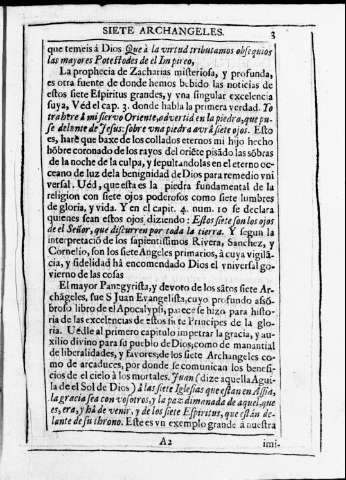 SIETE ARCHANGELES. 3
que temeis á Dios Que à la virtud tributamos obsequios
las mayores Potestades de el Impireo,
La prophecia de Zacharias misteriosa, y profunda,
es otra fuente de donde hemos bebido las noticias de
estos siete Espiritus grandes, y vna singular excelencia
suya, Ved el cap. 3. donde habla la primera verdad. Yo
trahere à mi servo Oriente, advertid en la piedra, que pu-
se delante de Jesus: sobre vna piedra avrá siete ojos. Esto
es, haré que baxe de los collados eternos mi hijo hecho
hõbre coronado de los rayos del oriẽte pisãdo las sõbras
de la noche de la culpa, y sepultandolas en el eterno oc-
ceano de luz de la benignidad de Dios para remedio vni
versal. Ued, que esta es la piedra fundamental de la
religion con siete ojos poderosos como siete lumbres
de gloria, y vida. Y en el capit. 4. num. 10 se declara
quienes sean estos ojos diziendo: Estos siete son los ojos de
el Señor, que discurren por toda la tierra. Y segun la
interpretació de los sapientissimos Rivera, Sanchez, y
Cornelio, son los siete Angeles primarios, à cuya vigilã-
cia, y fidelidad hà encomendado Dios el vniversal go-
vierno de las cosas
El mayor Panegyrista, y devoto de los sãtos siete Ar-
chãgeles, fue S Juan Evangelista, cuyo profundo asõ-
broso libro de el Apocalypsi, parece se hizo para histo-
ria de las excelencas de estos siete Principes de la glo-
ria. Uedle al primero capitulo impetrar la gracia, y au-
xilio divino para su pueblo de Dios, como de manantial
de liberalidades, y favores, de los siete Archangeles co-
mo de arcaduces, por donde se comunican los benefi-
cios de el cielo à los mortales. Juan (dize aquella Agui-
la de el Sol de Dios) à las siete Iglesias que estan en Assia,
la gracia sea con vosotros, y la paz dimanada de aquel, que
es, era, y hà de venir, y de los siete Espiritus, que estàn de-
lante de su throno. Este es vn exemplo grande à nuestra
A2 imi-